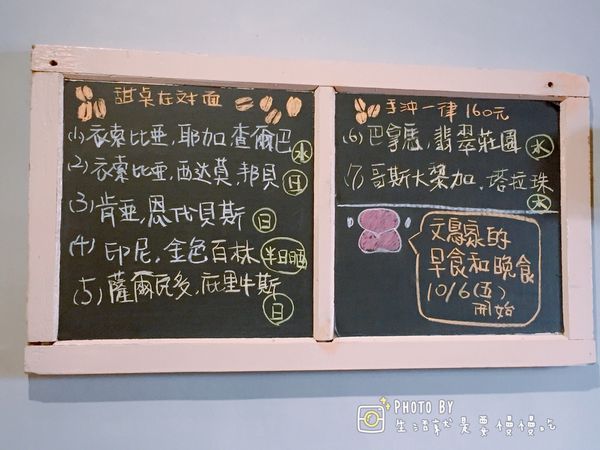 甜桌在对面
(1) 衣索比亞, 耶加, 查爾巴 水
(2) 衣索比亞, 西达莫, 邦貝 日
(3) 肯亞, 恩代貝斯 日
(4) 印尼, 金色百林 半日晒
(5) 薩爾瓦多, 庇里牛斯 日
手沖一律160元
(6) 巴拿馬, 翡翠莊園 水
(7) 哥斯大黎加, 塔拉珠 水
文鳥家的
早食和晚食
10/6(五)
開始
PHOTO BY
生活就是要慢慢吃